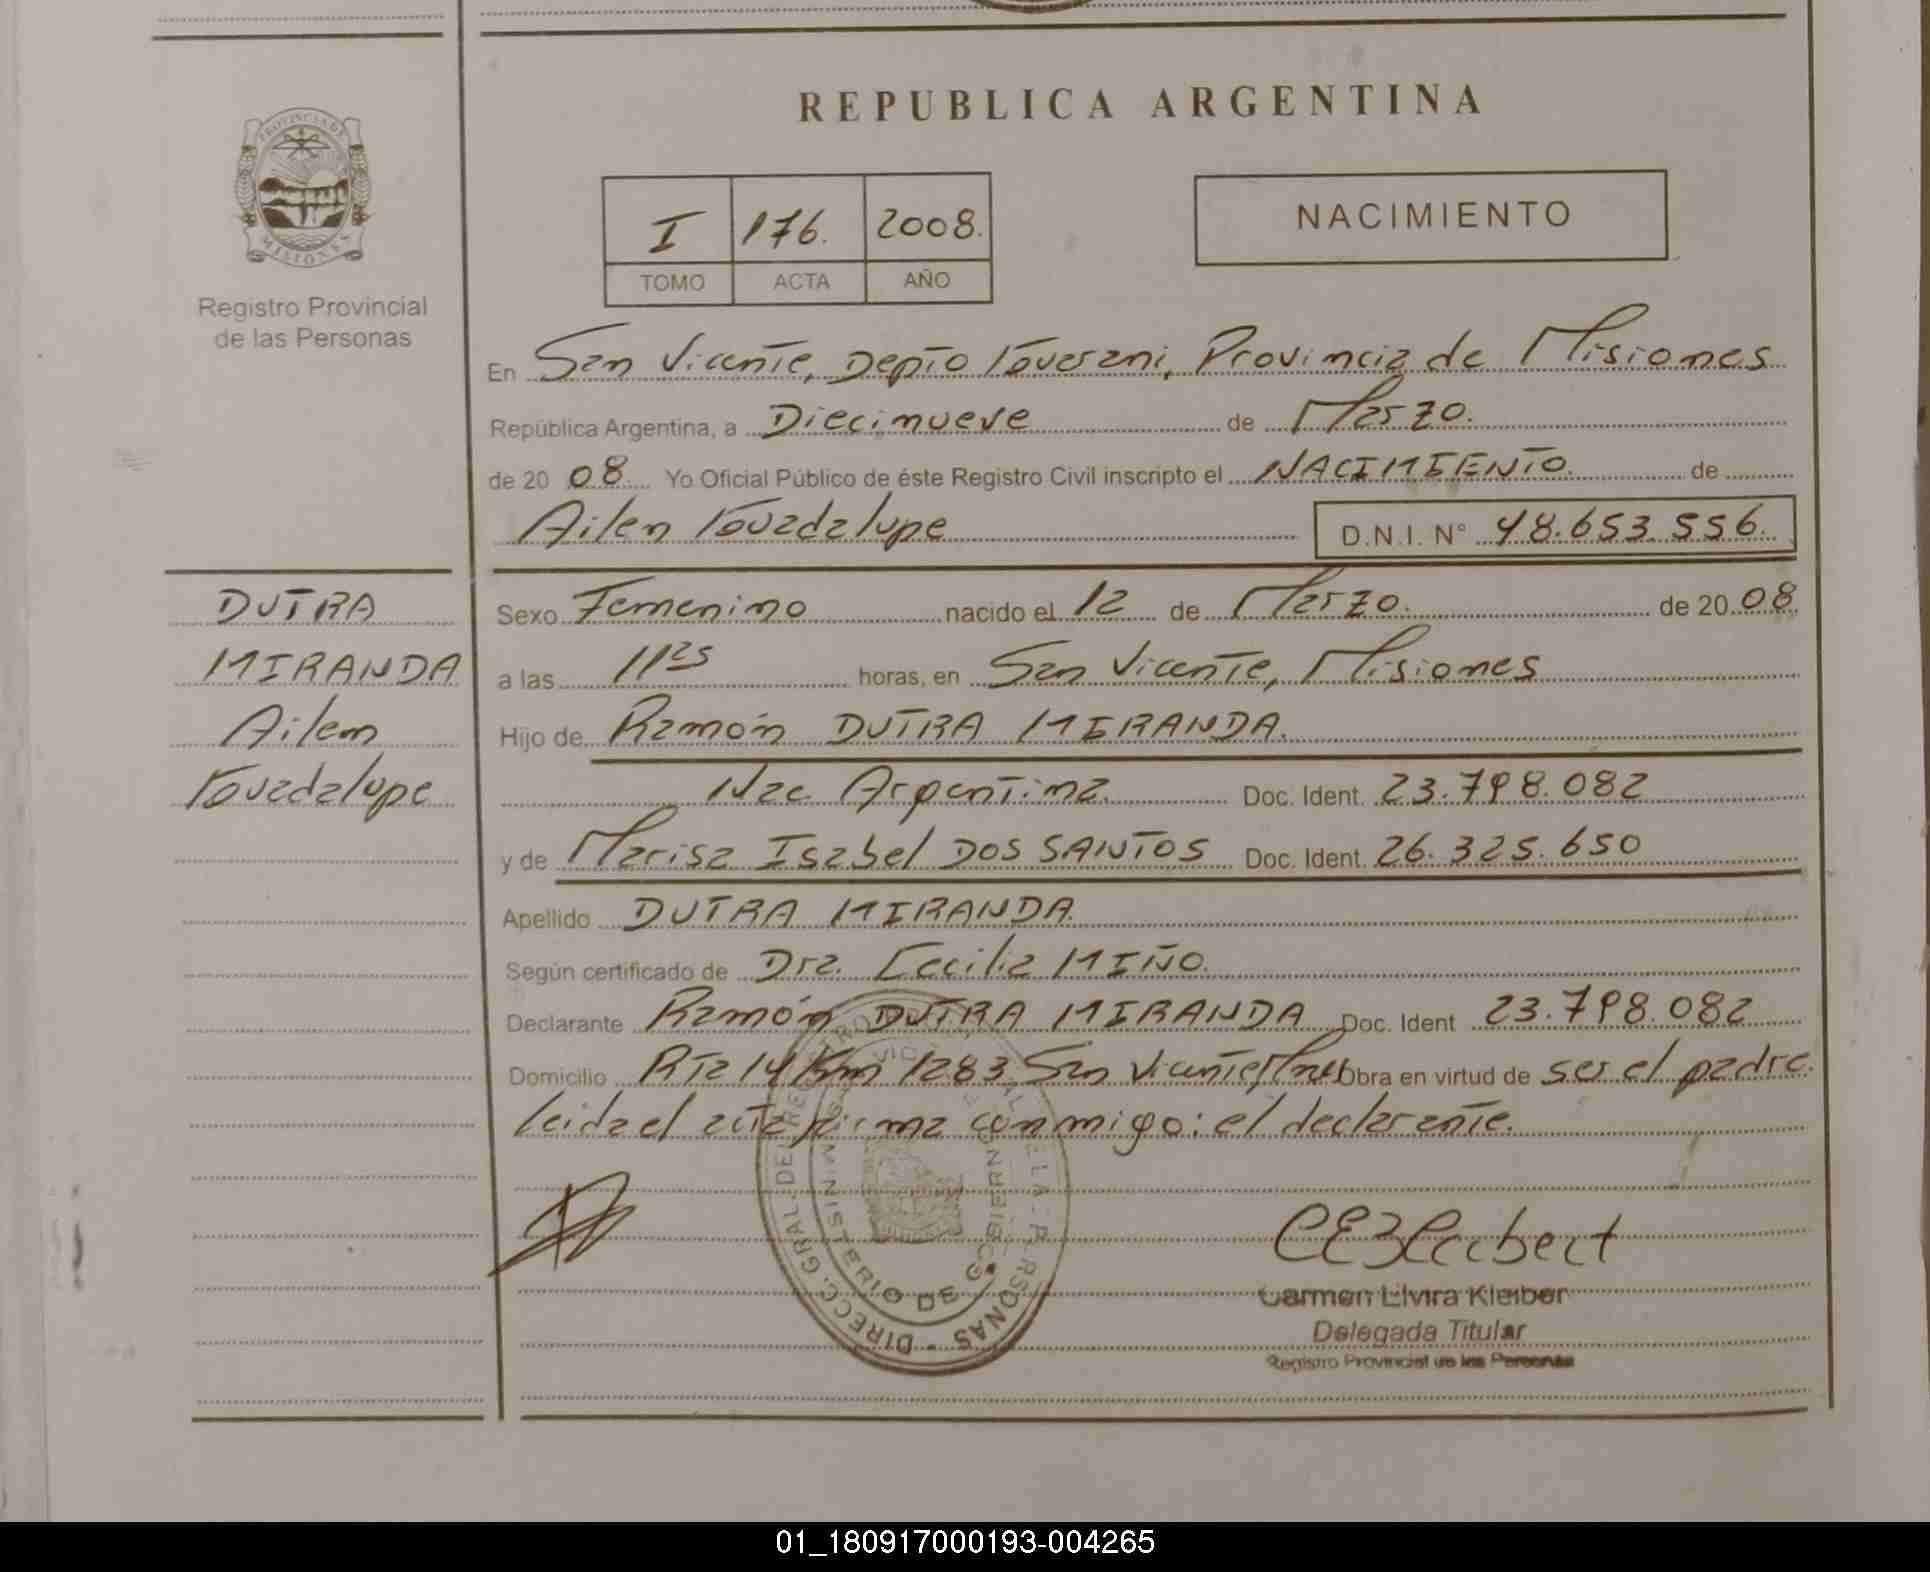 REPUBLICA ARGENTINA
PROVINCIA DE
MISIONES
Registro Provincial
de las Personas
I 176. 2008.
TOMO ACTA AÑO
NACIMIENTO
En San Vicente, Depto Guarani, Provincia de Misiones
República Argentina, a Diecinueve de Marzo.
de 20 08. Yo Oficial Público de éste Registro Civil inscripto el NACIMIENTO de
Ailen Guadalupe D.N.I. N° 48.653.556.
DUTRA
MIRANDA
Ailen
Guadalupe
Sexo Femenino nacido el 12 de Marzo. de 20 08
a las 11 25 horas, en San Vicente, Misiones
Hijo de Ramón DUTRA MIRANDA.
Nac Argentina Doc. Ident. 23.798.082
y de Marisa Isabel DOS SANTOS Doc. Ident. 26.325.650
Apellido DUTRA MIRANDA.
Según certificado de Dra. Cecilia MIÑO.
Declarante Ramón DUTRA MIRANDA Doc. Ident 23.798.082
Domicilio Rta 14 Km 1283 San Vicente Mnes Obra en virtud de ser el padre.
Leida el acta firma conmigo: el declarante.
DIRECC. GRAL. DE
MINISTERIO DE
PERSONAS
Carmen Elvira Kleiber
Delegada Titular
Registro Provincial de las Personas
01_180917000193-004265